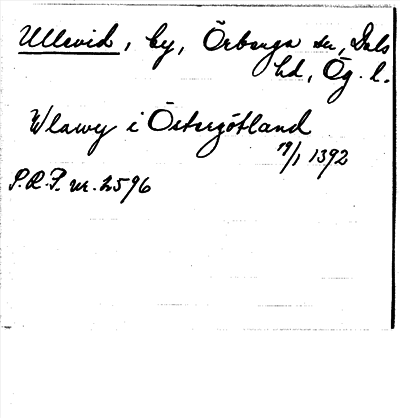 Ullevid, by, Örberga sn, Dals
hd, Ög. l.
Wlawy i Östergötland
19/1 1392
P.R.P. nr. 2596